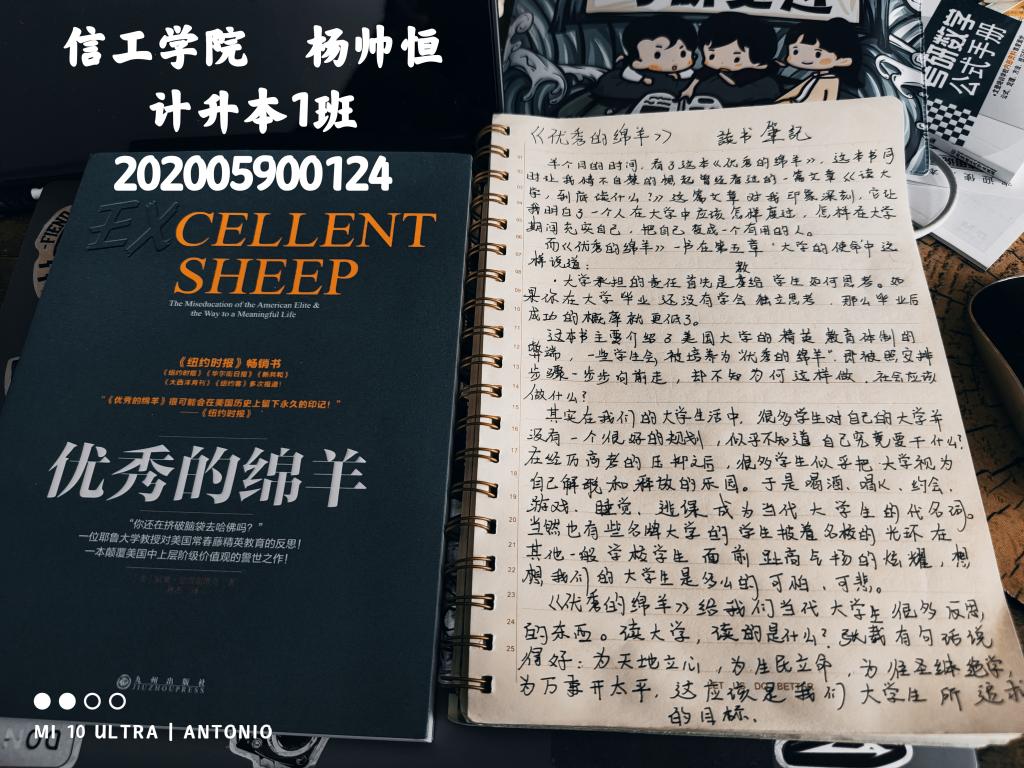 信工学院 杨帅恒
计升本1班
202005900124
EXCELLENT
SHEEP
The Miseducation of the American Elite &
the Way to a Meaningful Life
《纽约时报》畅销书
《纽约时报》《华尔街日报》《新共和》
《大西洋月刊》《纽约客》多次报道!
“《优秀的绵羊》很可能会在美国历史上留下永久的印记!”
——《纽约时报》
优秀的绵羊
“你还在挤破脑袋去哈佛吗?”
一位耶鲁大学教授对美国常春藤精英教育的反思!
一本颠覆美国中上层阶级价值观的警世之作!
九州出版社
JIUZHOUPRESS
MI 10 ULTRA | ANTONIO
考研数学
公式手册
《优秀的绵羊》 读书筆記
半个月的时间,看了这本《优秀的绵羊》,这本书同
时让我情不自禁的想起曾经看过的一篇文章《读大
学,到底读什么?》这篇文章对我印象深刻,它让
我明白了一个人在大学中应该怎样度过,怎样在大学
期间充实自己,把自己变成一个有用的人。
而《优秀的绵羊》一书在第五章“大学的使命”中这
样说道:
教
·大学承担的责任首先是给学生如何思考。如
果你在大学毕业还没有学会独立思考,那么毕业后
成功的概率就更低了。
这本书主要介绍了美国大学的精英教育体制的
弊端,一些学生会被培养为“优秀的绵羊”即被照安排
步骤一步步向前走,却不知为何这样做,社会应该
做什么?
其实在我们的大学生活中,很多学生对自己的大学并
没有一个很好的规划,似乎不知道自己究竟要干什么?
在经历高考的压抑之后,很多学生似乎把大学视为
自己解脱和释放的乐园。于是喝酒、唱K、约会、
游戏、睡觉、逃课成为当代大学生的代名词。
当然也有些名牌大学的学生披着名校的光环在
其他一般学校学生面前趾高气扬的炫耀,想
想我们的大学生是多么的可怕、可悲。
《优秀的绵羊》给我们当代大学生很多反思
的东西。读大学,读的是什么?张载有句话说
得好:为天地立心,为生民立命,为往圣继绝学,
为万事开太平,这应该是我们大学生所追求
的目标.